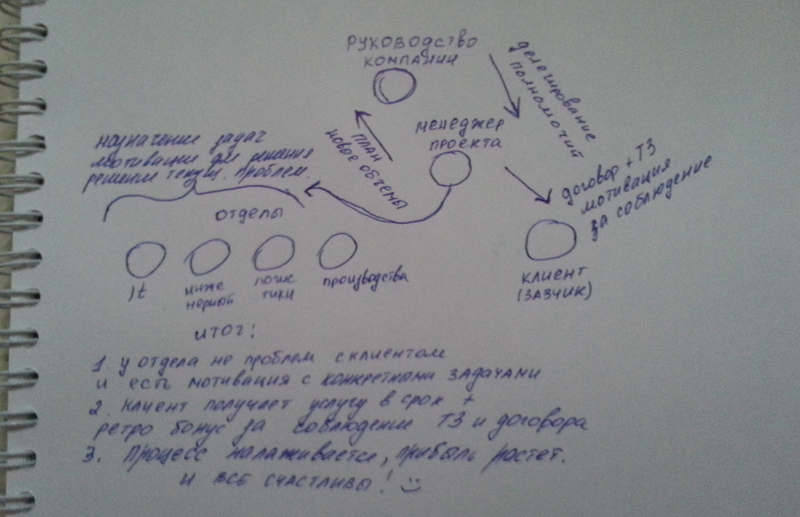 РУКОВОДСТВО
КОМПАНИИ
делегирование
полномочий
менеджер
проекта
ПЛАН
новое объемы
назначение задач
мотивация для решения
решение текущ. проблем.
договор + ТЗ
мотивация
за соблюдение
отделы
It
инже
нерной
логис
тики
производства
клиент
(ЗАЗЧИК)
итог:
1. у отдела не проблем с клиентом
и есть мотивация с конкретными задачами
2. клиент получает услугу в срок +
ретро бонус за соблюдение ТЗ и договора
3. Процесс налаживается, прибыль ростет.
и все счастливы!